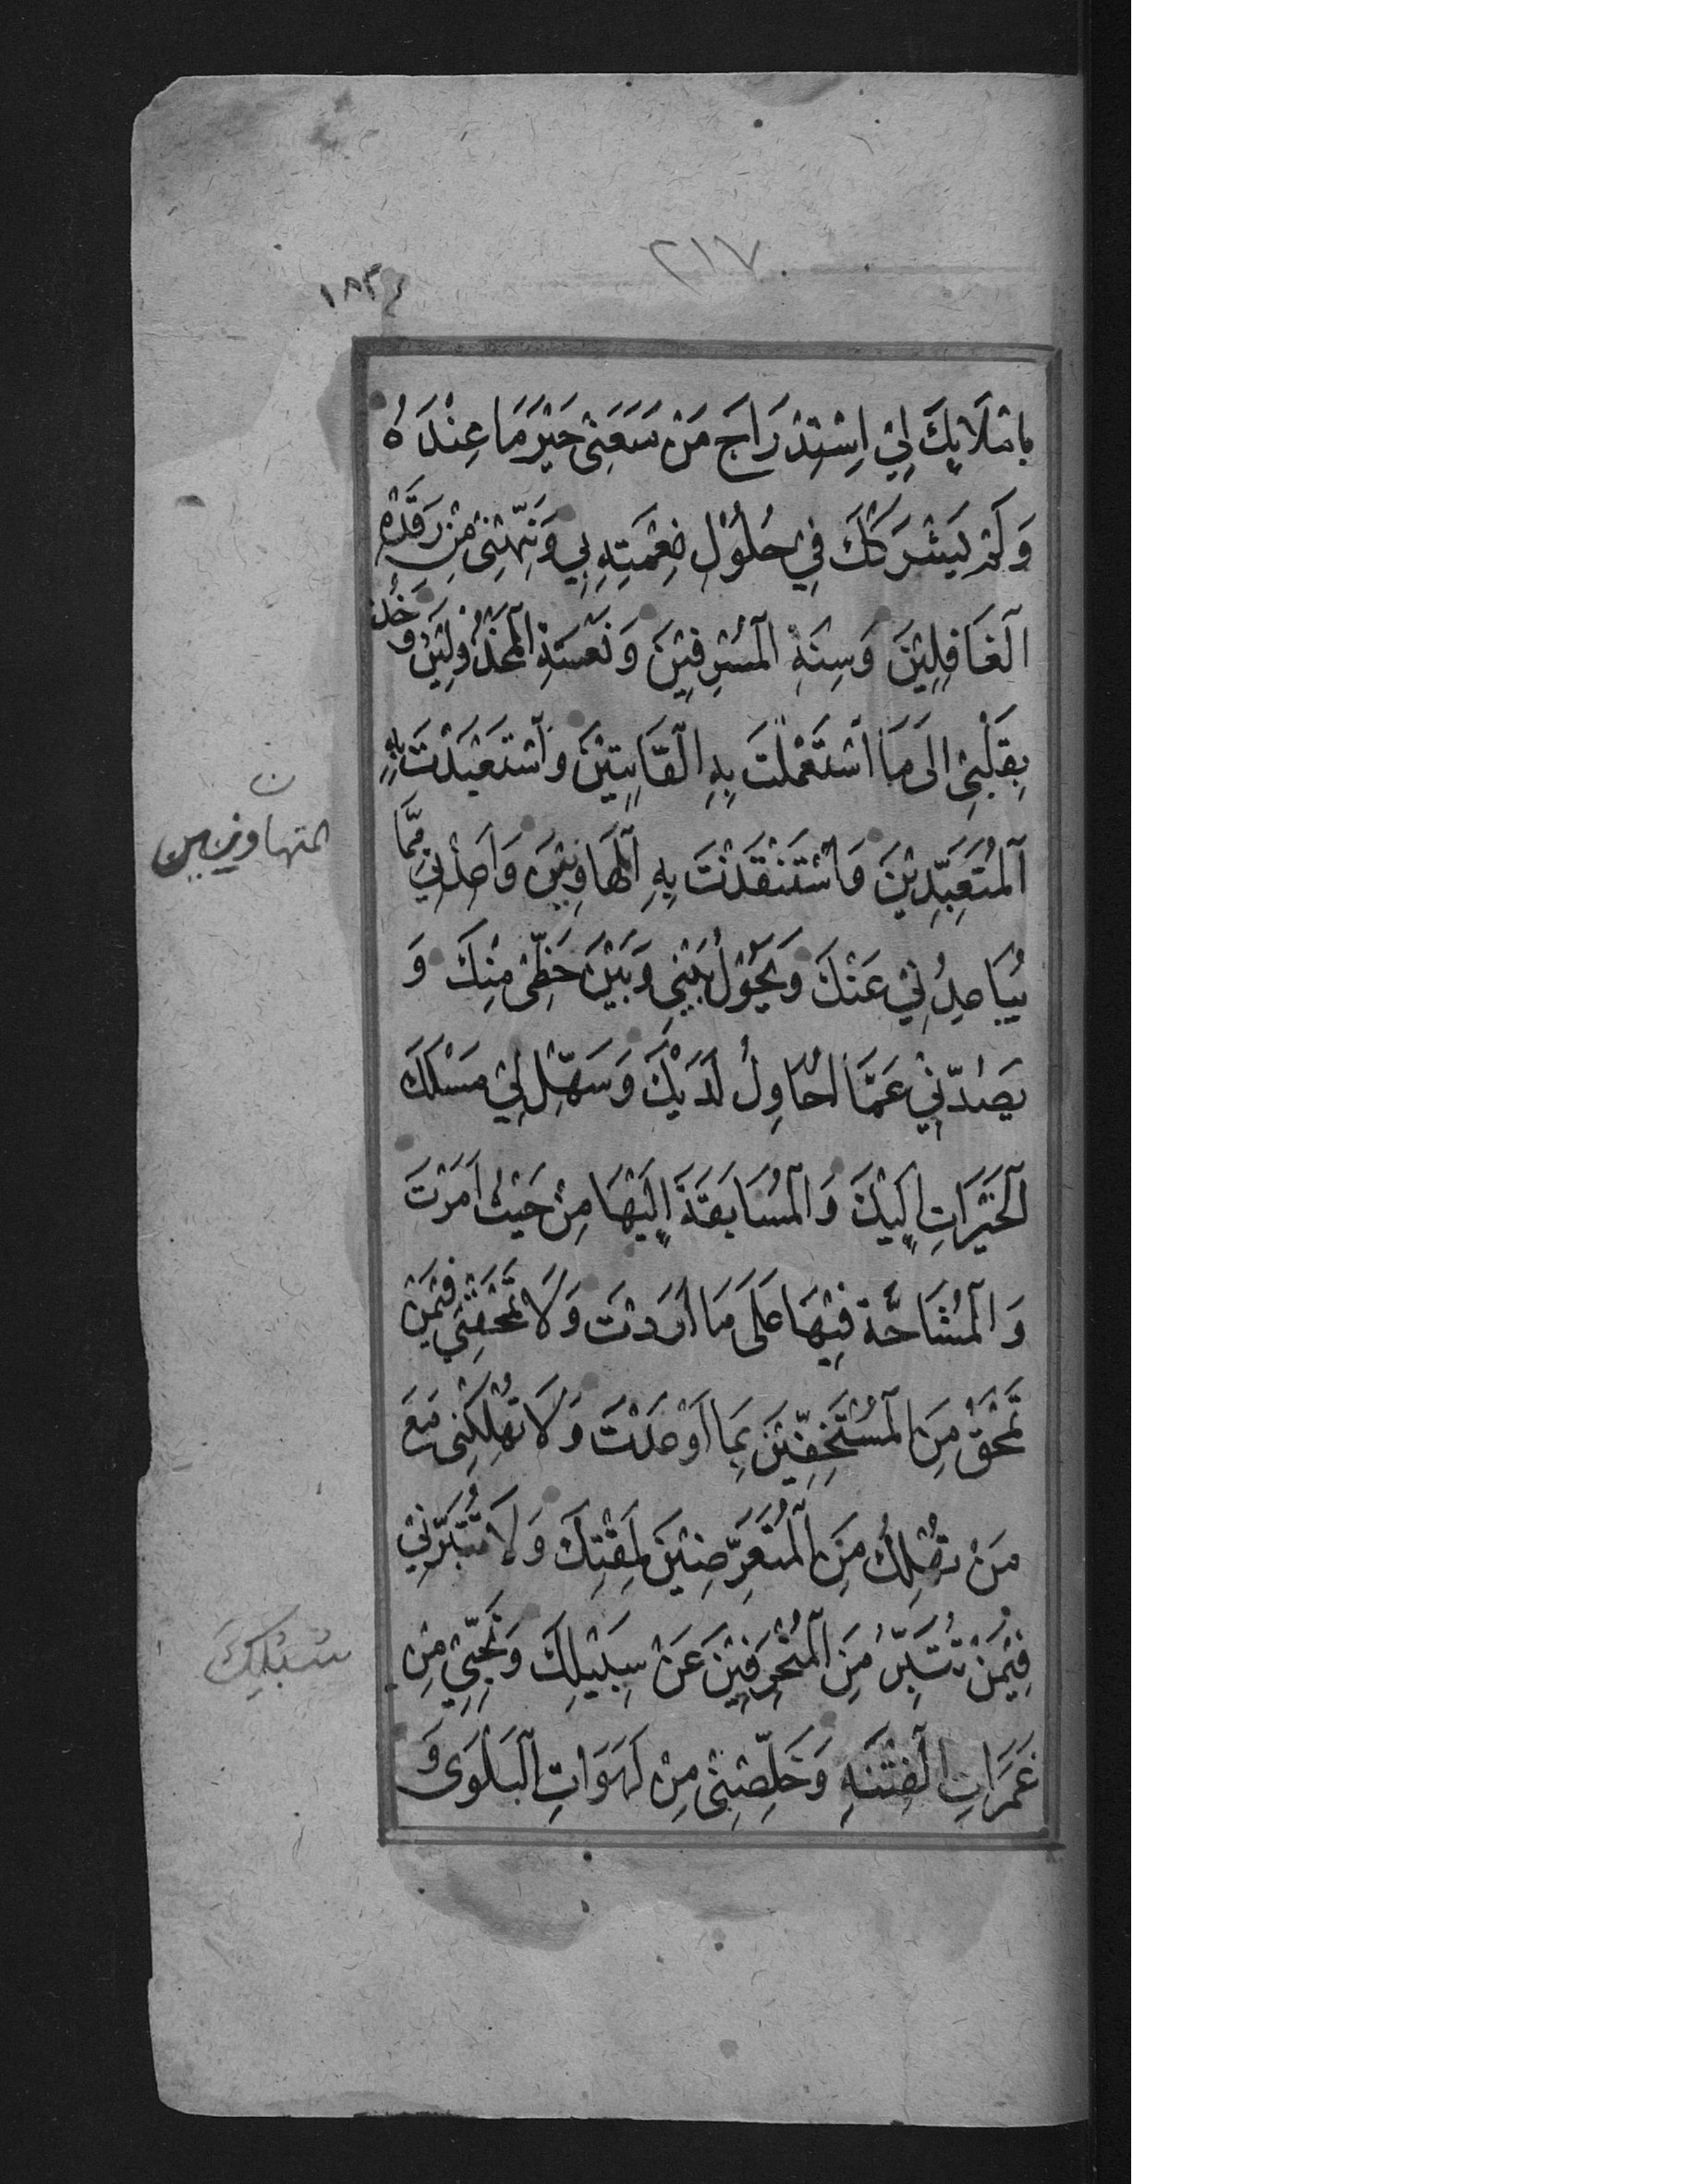 ٢١٧
١٨٢٤
بِامْلَائِكَ لِيْ اِسْتِدْرَاجَ مَنْ مَنَعَنِيْ خَيْرَ مَا عِنْدَهُ
وَلَمْ يَشْرَكْكَ فِيْ حُلُوْلِ نِعْمَتِهِ بِيْ وَنَبِّهْنِيْ مِنْ رَقْدَةِ
الْغَافِلِيْنَ وَسِنَةِ الْمُسْرِفِيْنَ وَنَعْسَةِ الْمَخْذُوْلِيْنَ وَخُذْ
بِقَلْبِيْ اِلَى مَا اسْتَعْمَلْتَ بِهِ الْقَانِتِيْنَ وَاسْتَعْبَدْتَ بِهِ
الْمُتَعَبِّدِيْنَ وَاسْتَنْقَذْتَ بِهِ الْمُهَاوِنِيْنَ وَاَعِذْنِيْ مِمَّا
المتهاونين
ن
يُبَاعِدُنِيْ عَنْكَ وَيَحُوْلُ بَيْنِيْ وَبَيْنَ حَظِّيْ مِنْكَ وَ
يَصُدُّنِيْ عَمَّا اُحَاوِلُ لَدَيْكَ وَسَهِّلْ لِيْ مَسْلَكَ
الْخَيْرَاتِ اِلَيْكَ وَالْمُسَابَقَةَ اِلَيْهَا مِنْ حَيْثُ اَمَرْتَ
وَالْمُشَاحَّةَ فِيْهَا عَلَى مَا اَرَدْتَ وَلَا تَمْحَقْنِيْ فِيْمَنْ
تَمْحَقُ مِنَ الْمُسْتَخِفِّيْنَ بِمَا اَوْعَدْتَ وَلَا تُهْلِكْنِيْ مَعَ
مَنْ تُهْلِكُ مِنَ الْمُتَعَرِّضِيْنَ لِمَقْتِكَ وَلَا تُتَبِّرْنِيْ
فِيْمَنْ تُتَبِّرُ مِنَ الْمُنْحَرِفِيْنَ عَنْ سَبِيْلِكَ وَنَجِّنِيْ مِنْ
سُبُلِكَ
غَمَرَاتِ الْفِتْنَةِ وَخَلِّصْنِيْ مِنْ لَهَوَاتِ الْبَلْوَى وَ